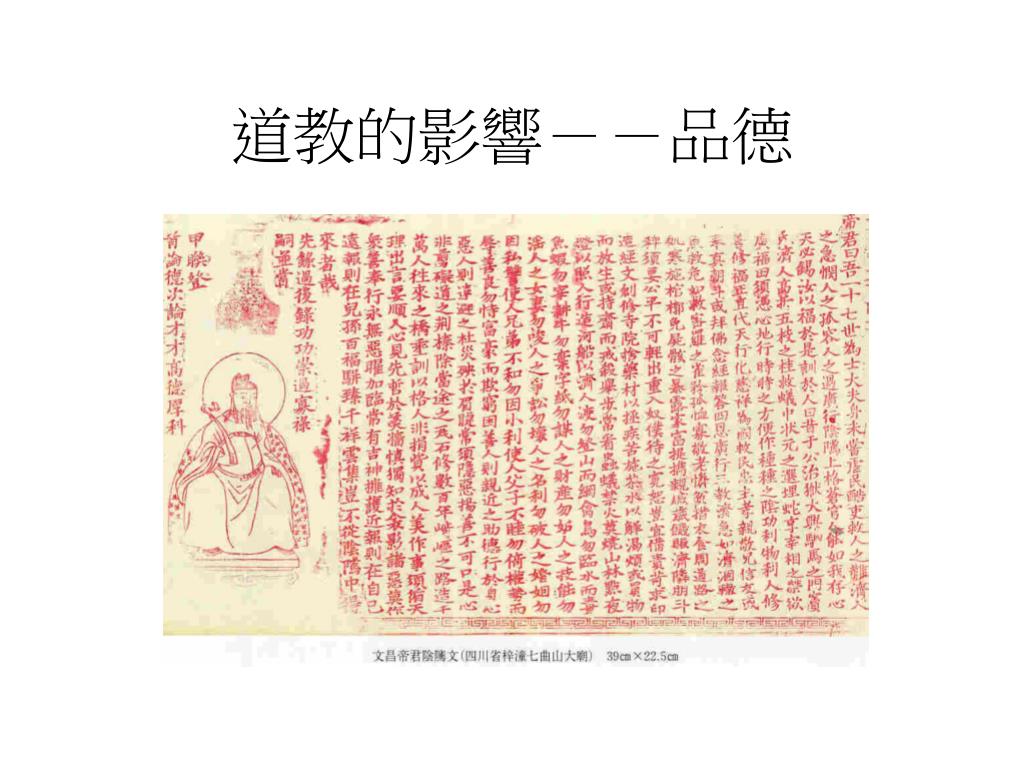 道教的影響－－品德
帝君曰吾一十七世為士大夫身未嘗虐民酷吏救人之難濟人
之急憫人之孤容人之過廣行陰騭上格蒼穹人能如我存心
天必錫汝以福於是訓於人曰昔于公治獄大興駟馬之門竇
氏濟人高折五枝之桂救蟻中狀元之選埋蛇享宰相之榮欲
廣福田須憑心地行時時之方便作種種之陰功利物利人修
善修福正直代天行化慈祥為國救民忠主孝親敬兄信友或
奉真朝斗或拜佛念經報答四恩廣行三教濟急如濟涸轍之
魚救危如救密羅之雀矜孤恤寡敬老憐貧措衣食周道路之
飢寒施棺槨免屍骸之暴露家富提攜親戚歲饑賑濟隣朋斗
秤須要公平不可輕出重入奴僕待之寬恕豈宜備責苛求印
造經文創修寺院捨藥材以拯疾苦施茶水以解渴煩或買物
而放生或持齋而戒殺舉步常看蟲蟻禁火莫燒山林點夜
燈以照人行造河船以濟人渡勿登山而網禽鳥勿臨水而毒
魚蝦勿宰耕牛勿棄字紙勿謀人之財產勿妒人之技能勿
淫人之女妻勿唆人之爭訟勿壞人之名利勿破人之婚姻勿
因私讐使人兄弟不和勿因小利使人父子不睦勿倚權勢而
辱善良勿恃富豪而欺窮困善人則親近之助德行於身心
惡人則遠避之杜災殃於眉睫常須隱惡揚善不可口是心
非剪礙道之荊榛除當途之瓦石修數百年崎嶇之路造千
萬人往來之橋垂訓以格人非捐貲以成人美作事須循天
理出言要順人心見先哲於羹牆慎獨知於衾影諸惡莫作
眾善奉行永無惡曜加臨常有吉神擁護近報則在自己
遠報則在兒孫百福駢臻千祥雲集豈不從陰騭中得
來者哉
先錄過後錄功功崇過寡祿
嗣並嘗
首論德次論才才高德厚科
甲聯登
文昌帝君陰騭文(四川省梓潼七曲山大廟) 39cm×22.5cm